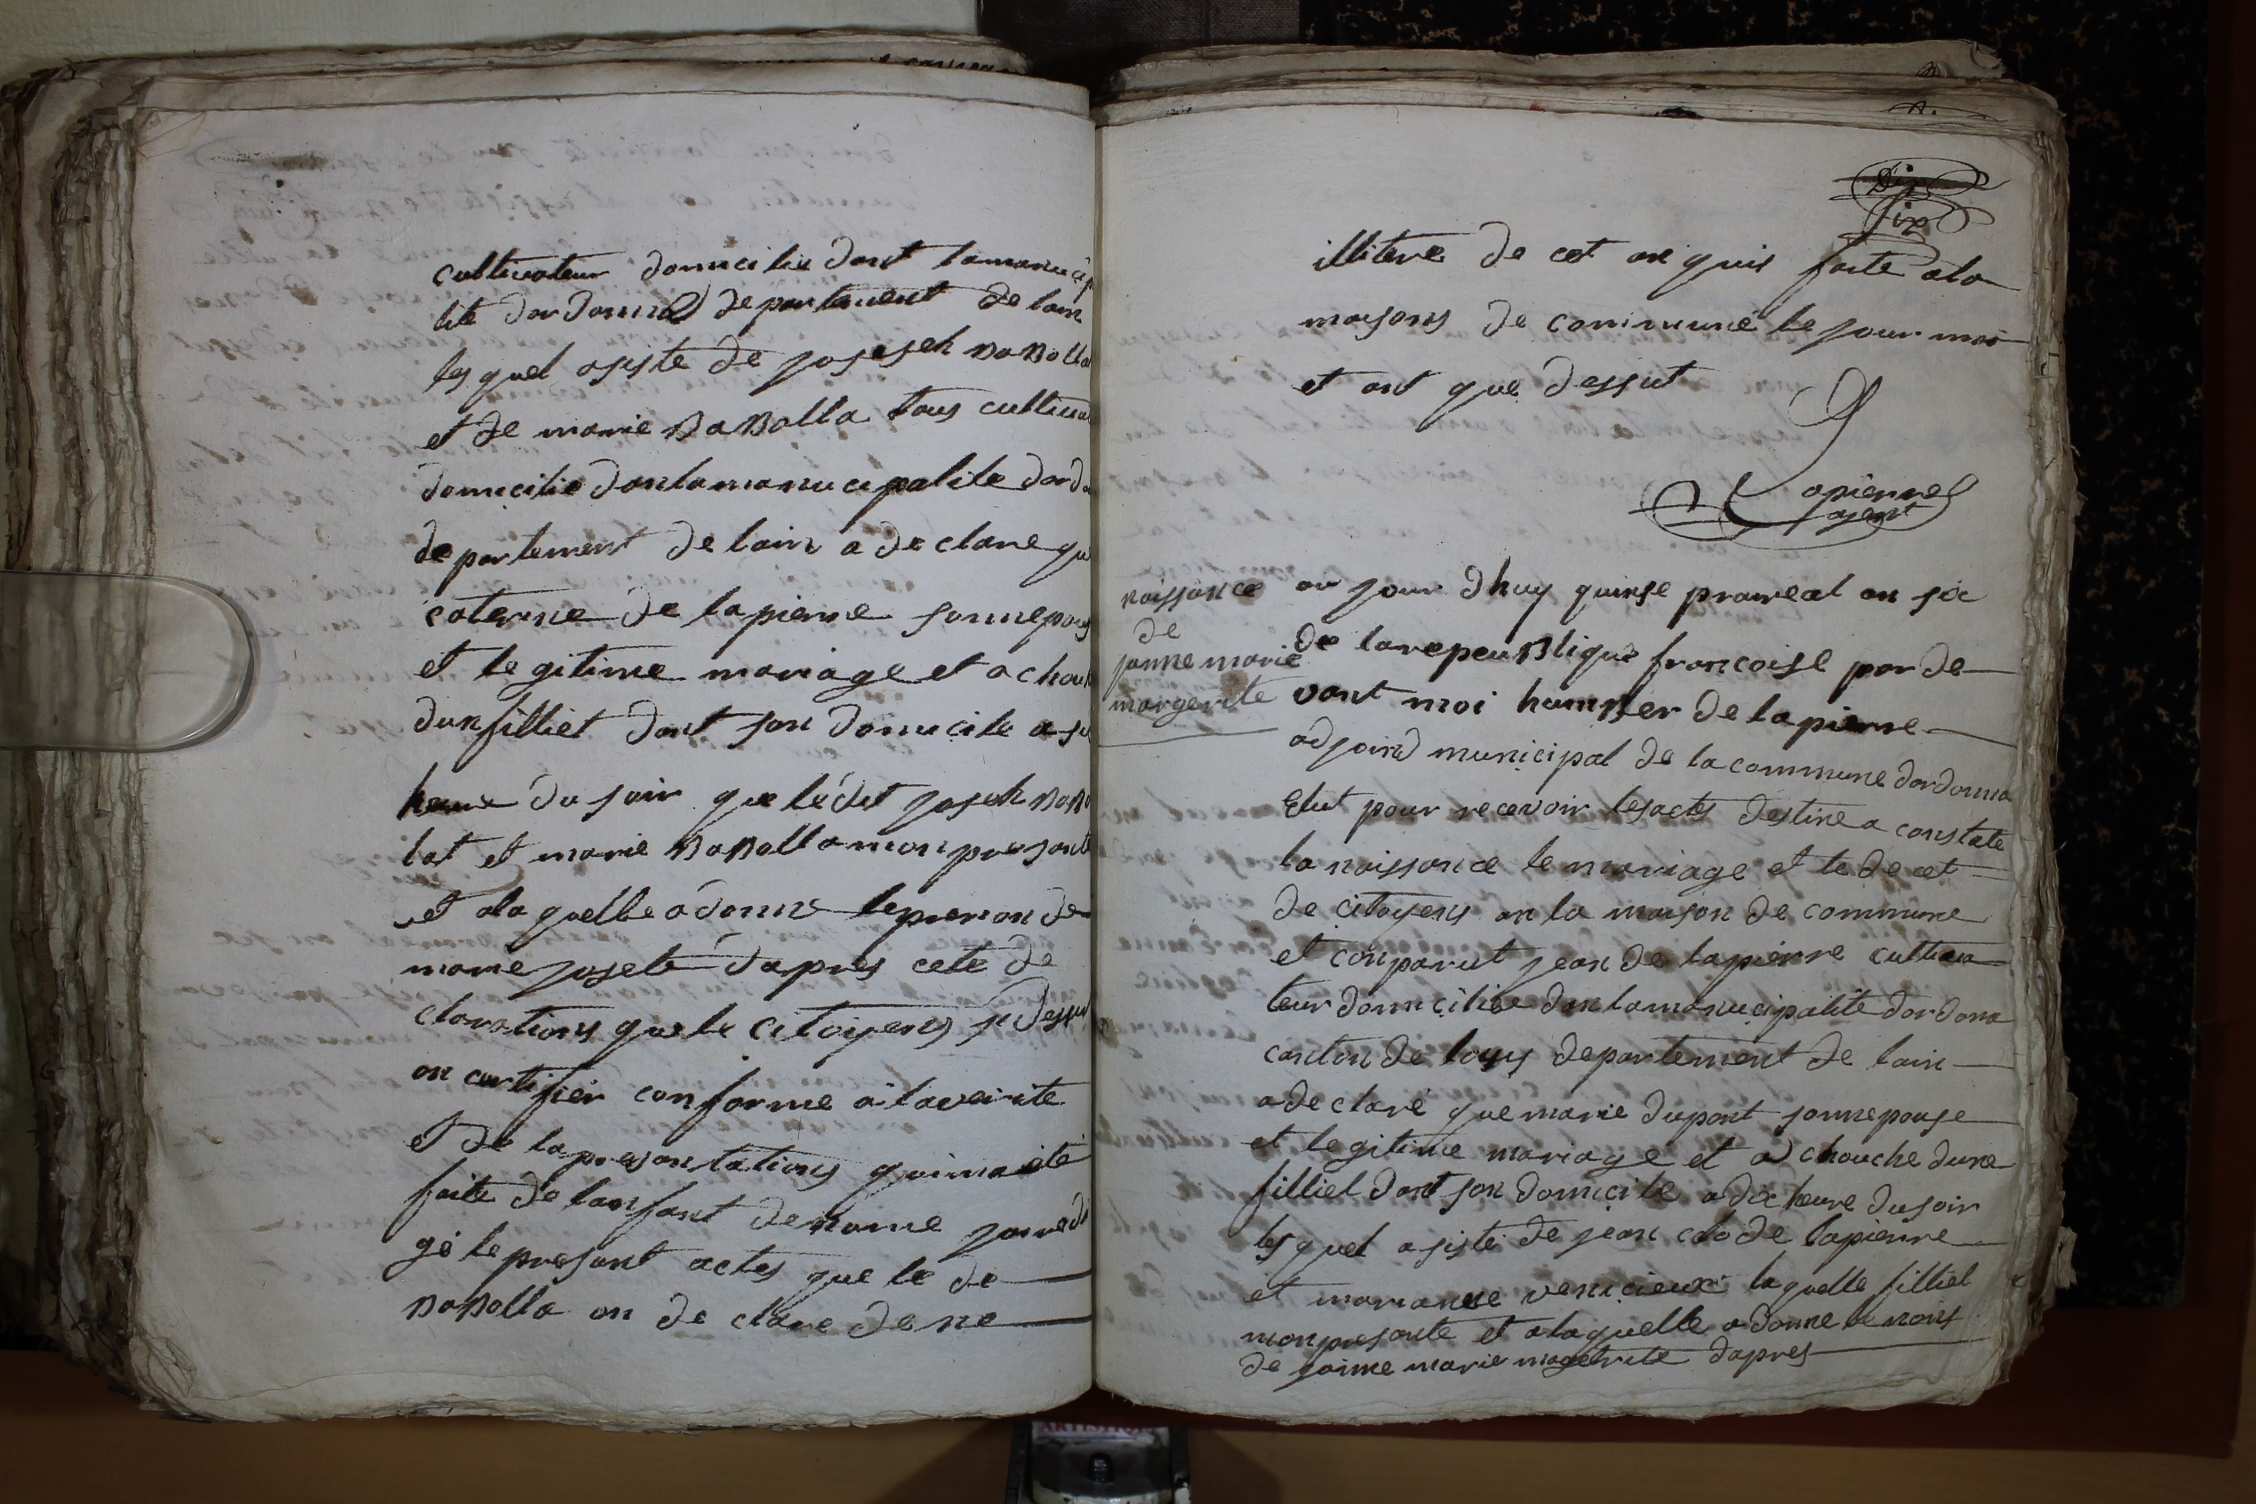 cultivateur domicilie dant lamanucip
lite dordonna departement de lain
les quel asiste de joseseh BaBolla
et de marie BaBolla tous cultiva
domicilie danlamanucipalite dordo
departement de lain a declare que
caterine de lapierre sonnepous
et legitime mariage et a chouch
dun filliet dant son domicile a si
heure du soir que ledit joseh BaBo
lat et marie BaBolla mon presante
et ala quelle a donne leprenon de
marie josete dapres cete de
clarations que le citoyens si dessut
on certifier conforme a laveirite
et de lapresantations quimaete
faite de lanfant denome jairedi
ge le presant actes que le de
BaBolla on de clare de ne
six
illitere de cet an quis faite ala
maisons de commune le jour moi
et ant que dessut
Lapierre
agent
naissance
de
janne marie
margerite
au jour dhuy quinse praireal an six
de larepeuBlique francoise par de
vant moi humBer de lapierre
adjoind municipal de la commune dordonna
Elut pour recevoir lesactes destine a constate
la naissance le mariage et le decet
de citoyens an la maison de commune
et conparut jean de lapierre cultiva
teur domicilie dan lamanucipalite dordona
canton de loyis departement de lain
a declare que marie dupont sonnepouse
et legitime mariage et a chouche dune
filliet dant son domicile a dix heure dusoir
les quel asiste de jean clode lapierre
et marianne venicieux laquelle filliet
monpresante et alaquelle a donne le nons
de jainne marie magetrite dapres